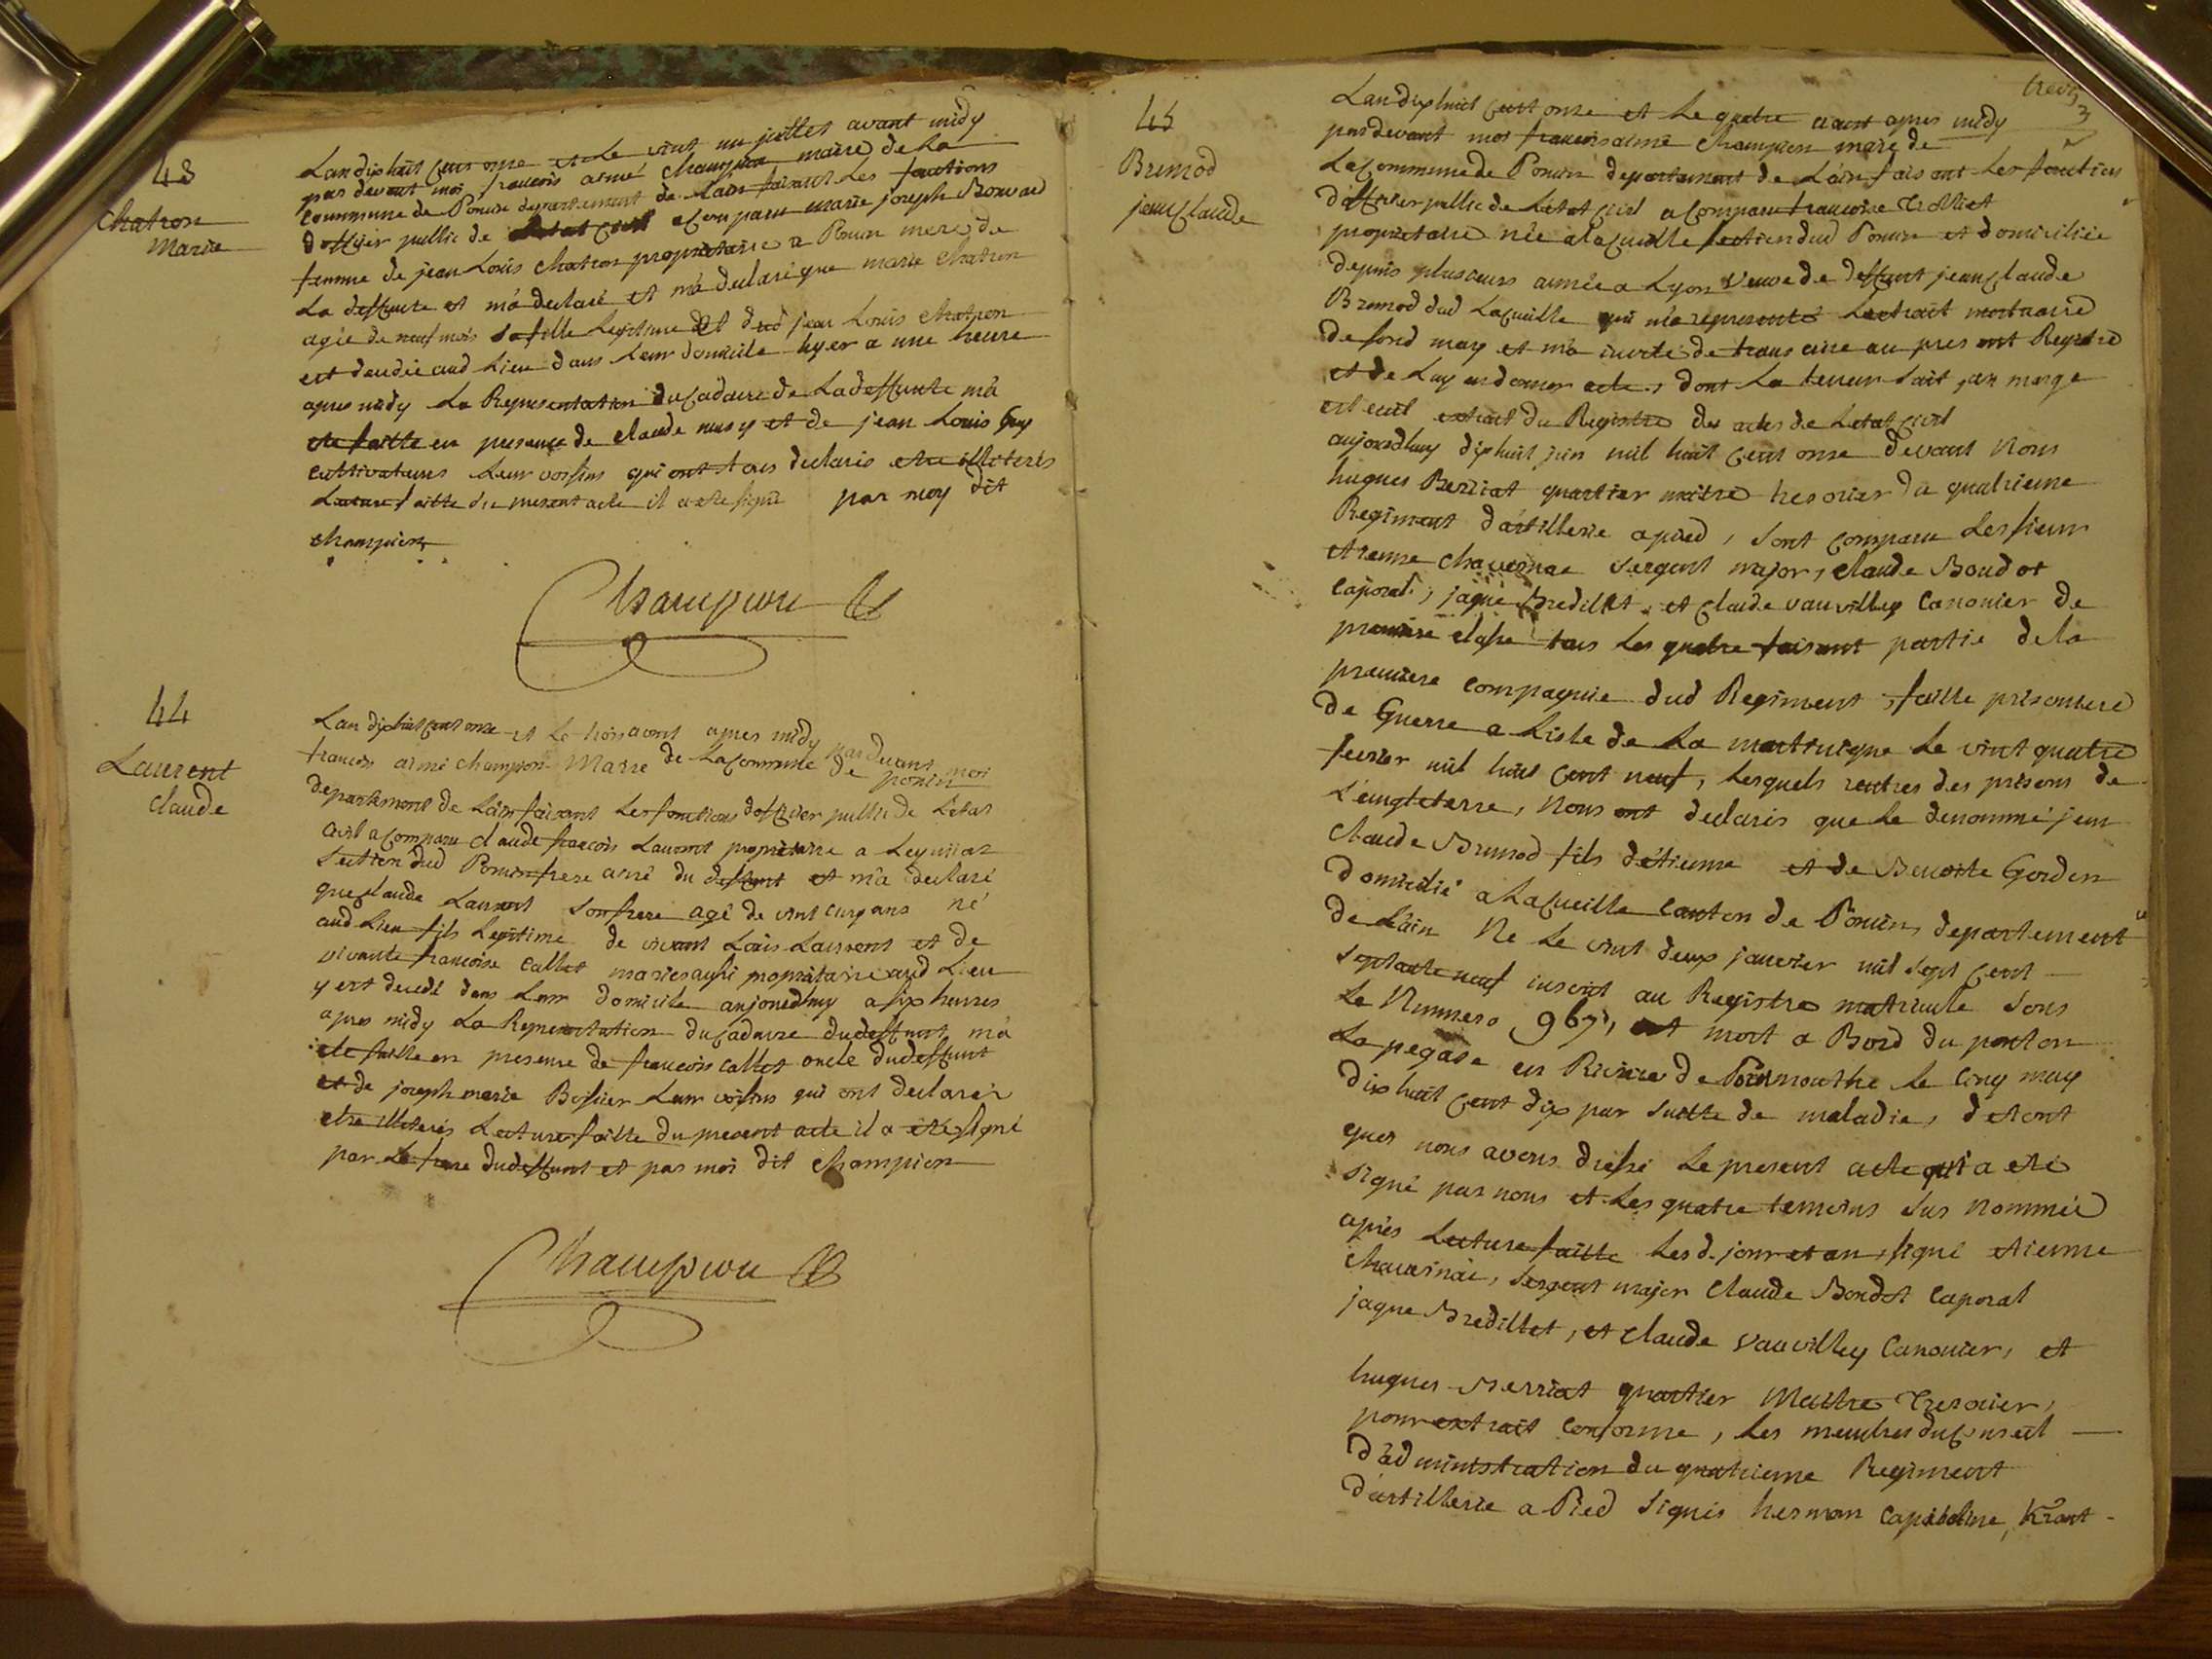 43
Chatron
Marie
Lan dixhuit cent onze et le vint un juillet avant midy
par devant moi francois aimé Champion maire de La
Commune de Poncin departement de Lain faisant Les fonctions
dofficier public de Letat civil a comparu marie joseph Bouvard
femme de jean Louis Chatron propriétaire a Poncin mere de
La deffunte et m'a declaré et m'a declaré que marie Chatron
agée de neuf mois sa fille Legitime et dud jean Louis Chatron
est decedée aud Lieu dans Leur domicile hyer a une heure
apres midy La Representation du cadavre de La deffunte m'a
ete faitte en presence de Claude musy et de jean Louis Guy
cultivateurs Leur voisins qui ont tous declarés etre illiterés
Lecture faitte du present acte il a ete signé par moy dit
champion
Champion
44
Laurent
Claude
Lan dixhuit cent onze et le trois aout apres midy pardevant moi
francois aimé champion Maire de La Commune de poncin
departement de Lain faisant Les fonctions dofficier public de Letat
civil a comparu Claude francois Laurent propriétaire a Leymiat
Section dud Poncin frere ainé du deffunt et m'a declaré
que Claude Laurent son frere agé de vint cinq ans né
aud Lieu fils Legitime de vivant Louis Laurent et de
vivante francoise Callet mariés aussi propriétaire aud Lieu
y est decedé dans Leur domicile aujourdhuy a six heures
apres midy La Representation du cadavre du deffunt m'a
ete faitte en presence de francois Callet oncle du deffunt
et de joseph marie Bossuer Leur voisins qui ont declarés
etre illiterés Lecture faitte du present acte il a été signé
par Le frere du deffunt et par moi dit Champion
Champion
45
Brunod
jean Claude
3
Lan dixhuit cent onze et Le quatre aout apres midy
pardevant moi francois aimé Champion maire de
La Commune de Poncin departement de Lain faisant Les fonction
dofficier public de Letat civil a comparu francoise Trolliet
propriétaire née a La Cueille section dud Poncin et domiciliée
depuis plusieurs année a Lyon veuve de deffunt jean Claude
Brunod dud La cueille qui m'a representé Lextrait mortuaire
de fond mary et m'a invité de transcrire au present Registre
et de Luy en donner acte, dont La teneur suit, en marge
est ecrit extrait du Registre des actes de Letat civil
aujourdhuy dixhuit juin mil huit cent onze devant Nous
hugues Berriat quartier maitre tresorier du quatrieme
Regiment d'artillerie a pied, sont comparu Les sieur
etienne Chavernac sergent major, Claude Boudot
Caporal, jaque Bredillet, et Claude vauvilley Canonier de
premiere classe tous Les quatre faisant partie de la
premiere compagnie dud Regiment, faitte prisoniere
de Guerre a Lisle de La martinique Le vint quatre
fevrier mil huit cent neuf, Lesquels rentres des prisons de
L'engleterre, Nous ont declarés que Le denommé jean
Claude Brunod fils d'étienne et de Benoite Gordon
domicilié a La cueille canton de Poncin, departement
de L'ain Né Le vint deux janvier mil sept cent
septante neuf inscrit au Registre matricule sous
Le Nummero 967, est mort a Bord du ponton
La pegase en Riviere de Porsmouthe Le cinq may
dix huit cent dix par suitte de maladie, detout
quoi nous avons dressé Le present acte qui a eté
signé par nous et Les quatre temoins sus nommée
après Lecture faitte Lesd. jour et an, signé etienne
Chavernac, sergent major Claude Boudot Caporal
jaque Bredillet, et Claude vauvilley Canonier, et
hugues Berriat quartier Maitre Tresorier,
pour extrait conforme, Les membres du conseil
d'administration du quatrieme Regiment
d'artillerie a Pied signés herman capitaine, Krant-